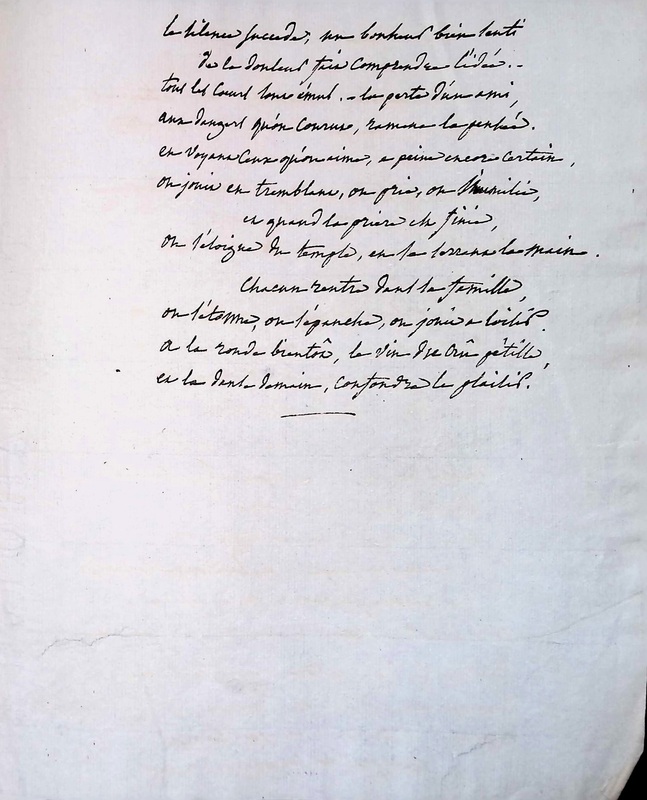 le silence succede; un bonheur bien senti
de la douleur fait comprendre l'idée.-
tous les Cœurs sont émus.- la perte d'un ami,
aux dangers qu'on Courut, ramene la pensée.
en voyant Ceux qu'on aime, a peine encore Certain,
on jouit en tremblant, on prie, on s'humilie,
et quand la priere est finie,
on s'éloigne du temple, en se serrant la main.
Chacun rentre dans sa famille,
on s'étonne, on s'épanche, on jouit a loisir.
a la ronde bientôt, le vin du Crû pétille,
et la danse demain, Confondra le plaisir.